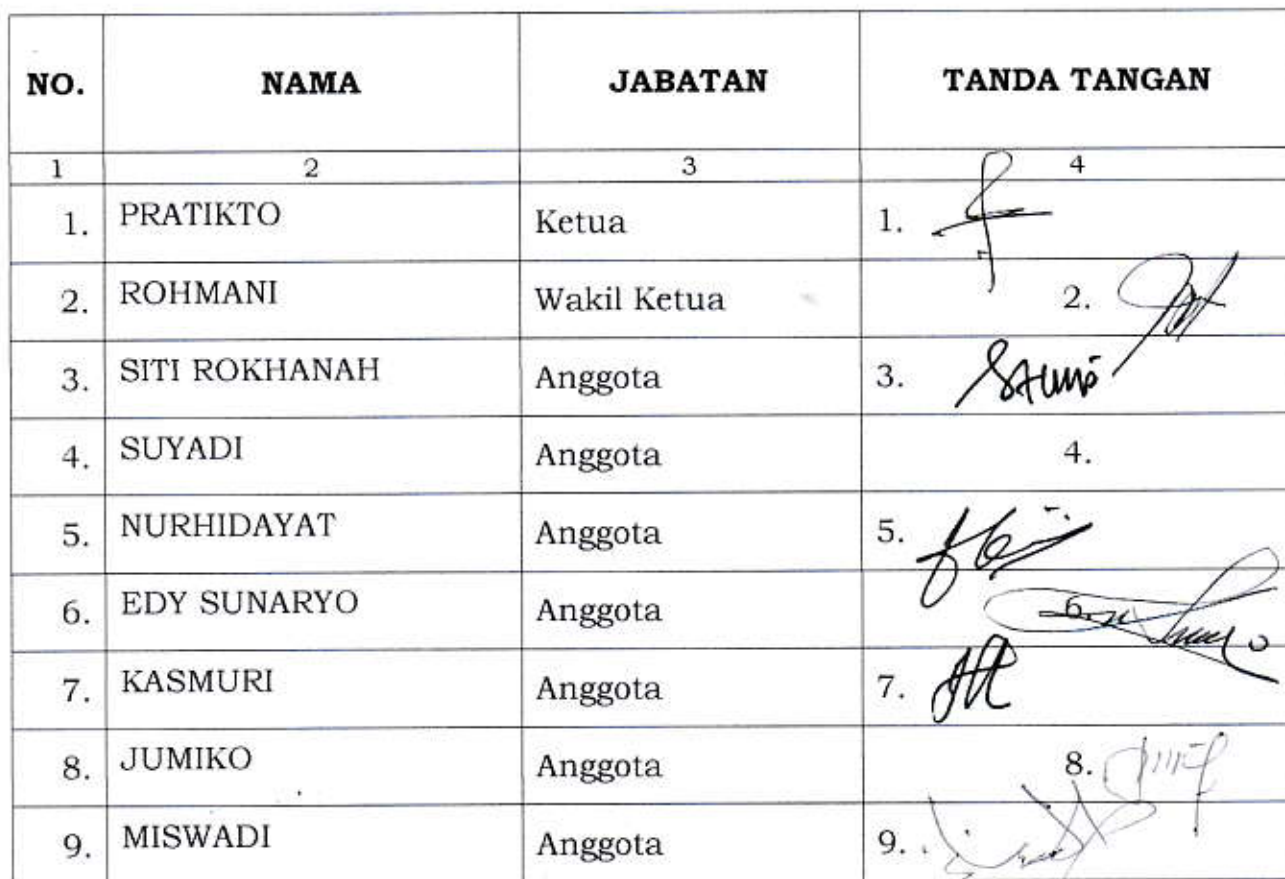 NO. NAMA JABATAN TANDA TANGAN
1 2 3 4
1. PRATIKTO Ketua 1.
2. ROHMANI Wakil Ketua 2.
3. SITI ROKHANAH Anggota 3.
4. SUYADI Anggota 4.
5. NURHIDAYAT Anggota 5.
6. EDY SUNARYO Anggota 6.
7. KASMURI Anggota 7.
8. JUMIKO Anggota 8.
9. MISWADI Anggota 9.